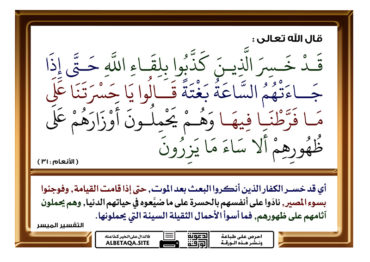 قال الله تعالى :
قَدْ خَسِرَ الَّذِينَ كَذَّبُوا بِلِقَاءِ اللَّهِ حَتَّى إِذَا
جَاءَتْهُمُ السَّاعَةُ بَغْتَةً قَالُوا يَا حَسْرَتَنَا عَلَى
مَا فَرَّطْنَا فِيهَا وَهُمْ يَحْمِلُونَ أَوْزَارَهُمْ عَلَى
ظُهُورِهِمْ أَلَا سَاءَ مَا يَزِرُونَ
( الأنعام : ٣١ )
أي قد خسر الكفار الذين أنكروا البعث بعد الموت، حتى إذا قامت القيامة، وفوجئوا
بسوء المصير، نادَوا على أنفسهم بالحسرة على ما ضيَّعوه في حياتهم الدنيا، وهم يحملون
آثامهم على ظهورهم، فما أسوأ الأحمال الثقيلة السيئة التي يحملونها.
التفسير الميسر
احرص على طباعة
ونشر هذه الورقة
فالدال على الخير كفاعله
ALBETAQA.SITE